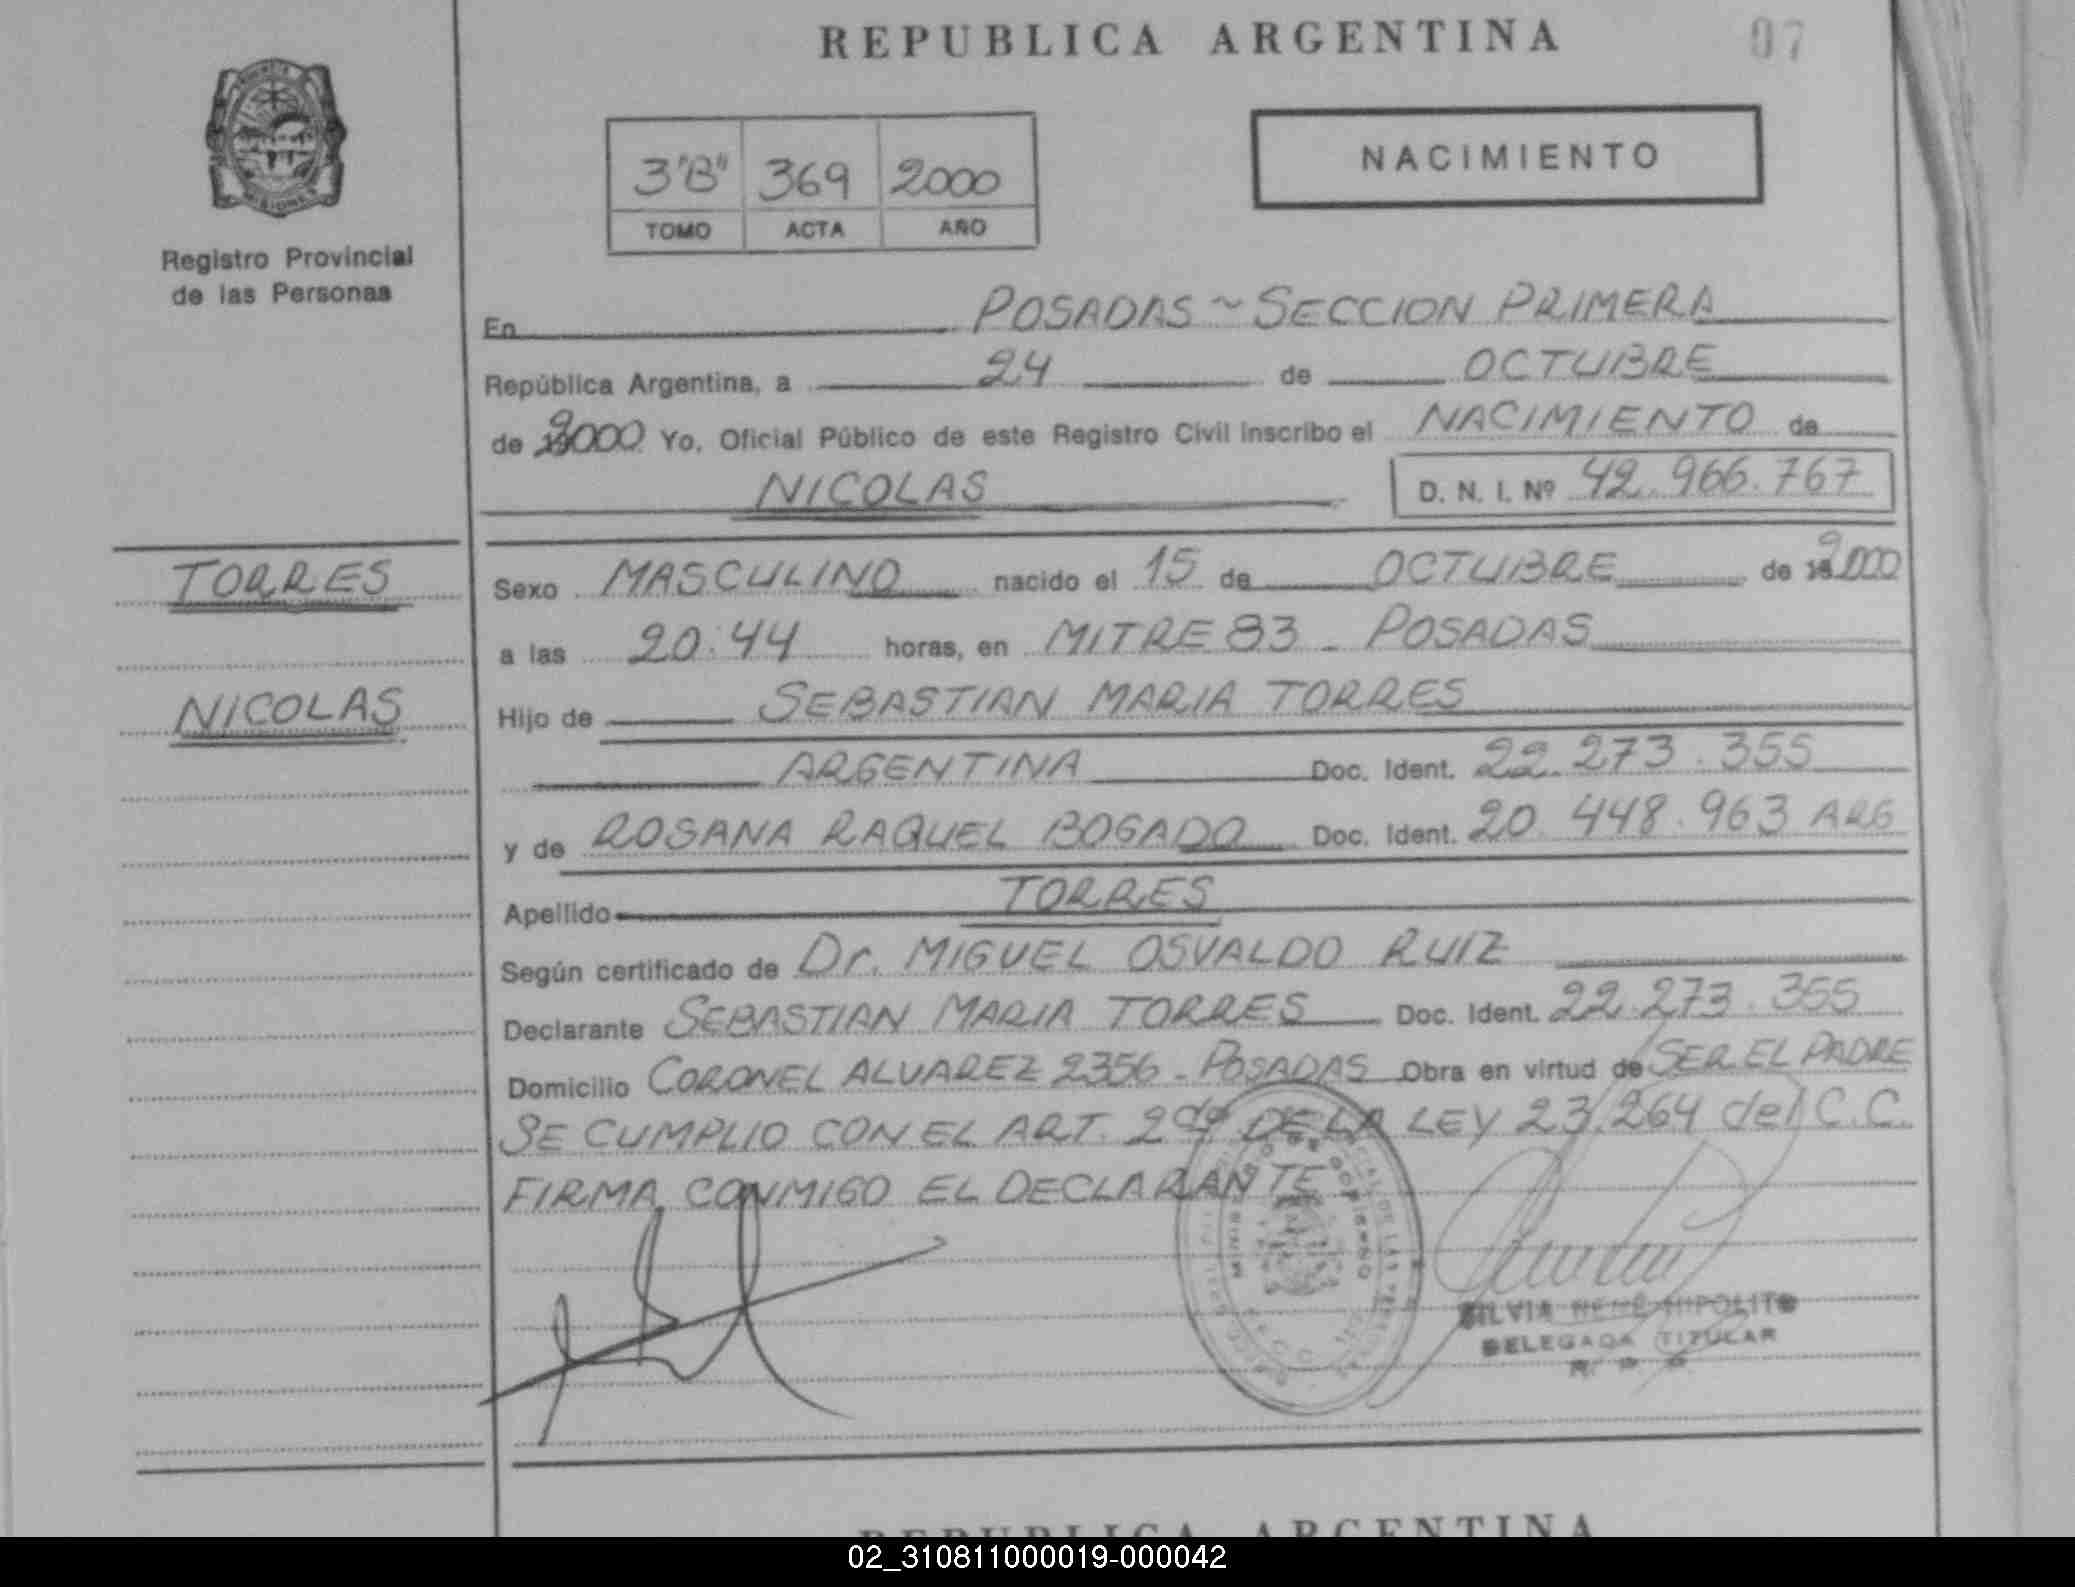 REPUBLICA ARGENTINA
07
3"B" 369 2000
TOMO ACTA AÑO
NACIMIENTO
Registro Provincial
de las Personas
En POSADAS ~ SECCION PRIMERA
República Argentina, a 24 de OCTUBRE
de 2000 Yo, Oficial Público de este Registro Civil inscribo el NACIMIENTO de
NICOLAS D. N. I. Nº 42.966.767
TORRES
NICOLAS
Sexo MASCULINO nacido el 15 de OCTUBRE de 2000
a las 20:44 horas, en MITRE 83 - POSADAS
Hijo de SEBASTIAN MARIA TORRES
ARGENTINA Doc. Ident. 22.273.355
y de ROSANA RAQUEL BOGADO Doc. Ident. 20.448.963 ARG
Apellido TORRES
Según certificado de Dr. MIGUEL OSVALDO RUIZ
Declarante SEBASTIAN MARIA TORRES Doc. Ident. 22.273.355
Domicilio CORONEL ALVAREZ 2356 - POSADAS Obra en virtud de SER EL PADRE
SE CUMPLIO CON EL ART. 2do DE LA LEY 23.264 del C.C.
FIRMA CONMIGO EL DECLARANTE
SILVIA RENÉ HIPOLITO
DELEGADA TITULAR
REPUBLICA ARGENTINA
02_310811000019-000042